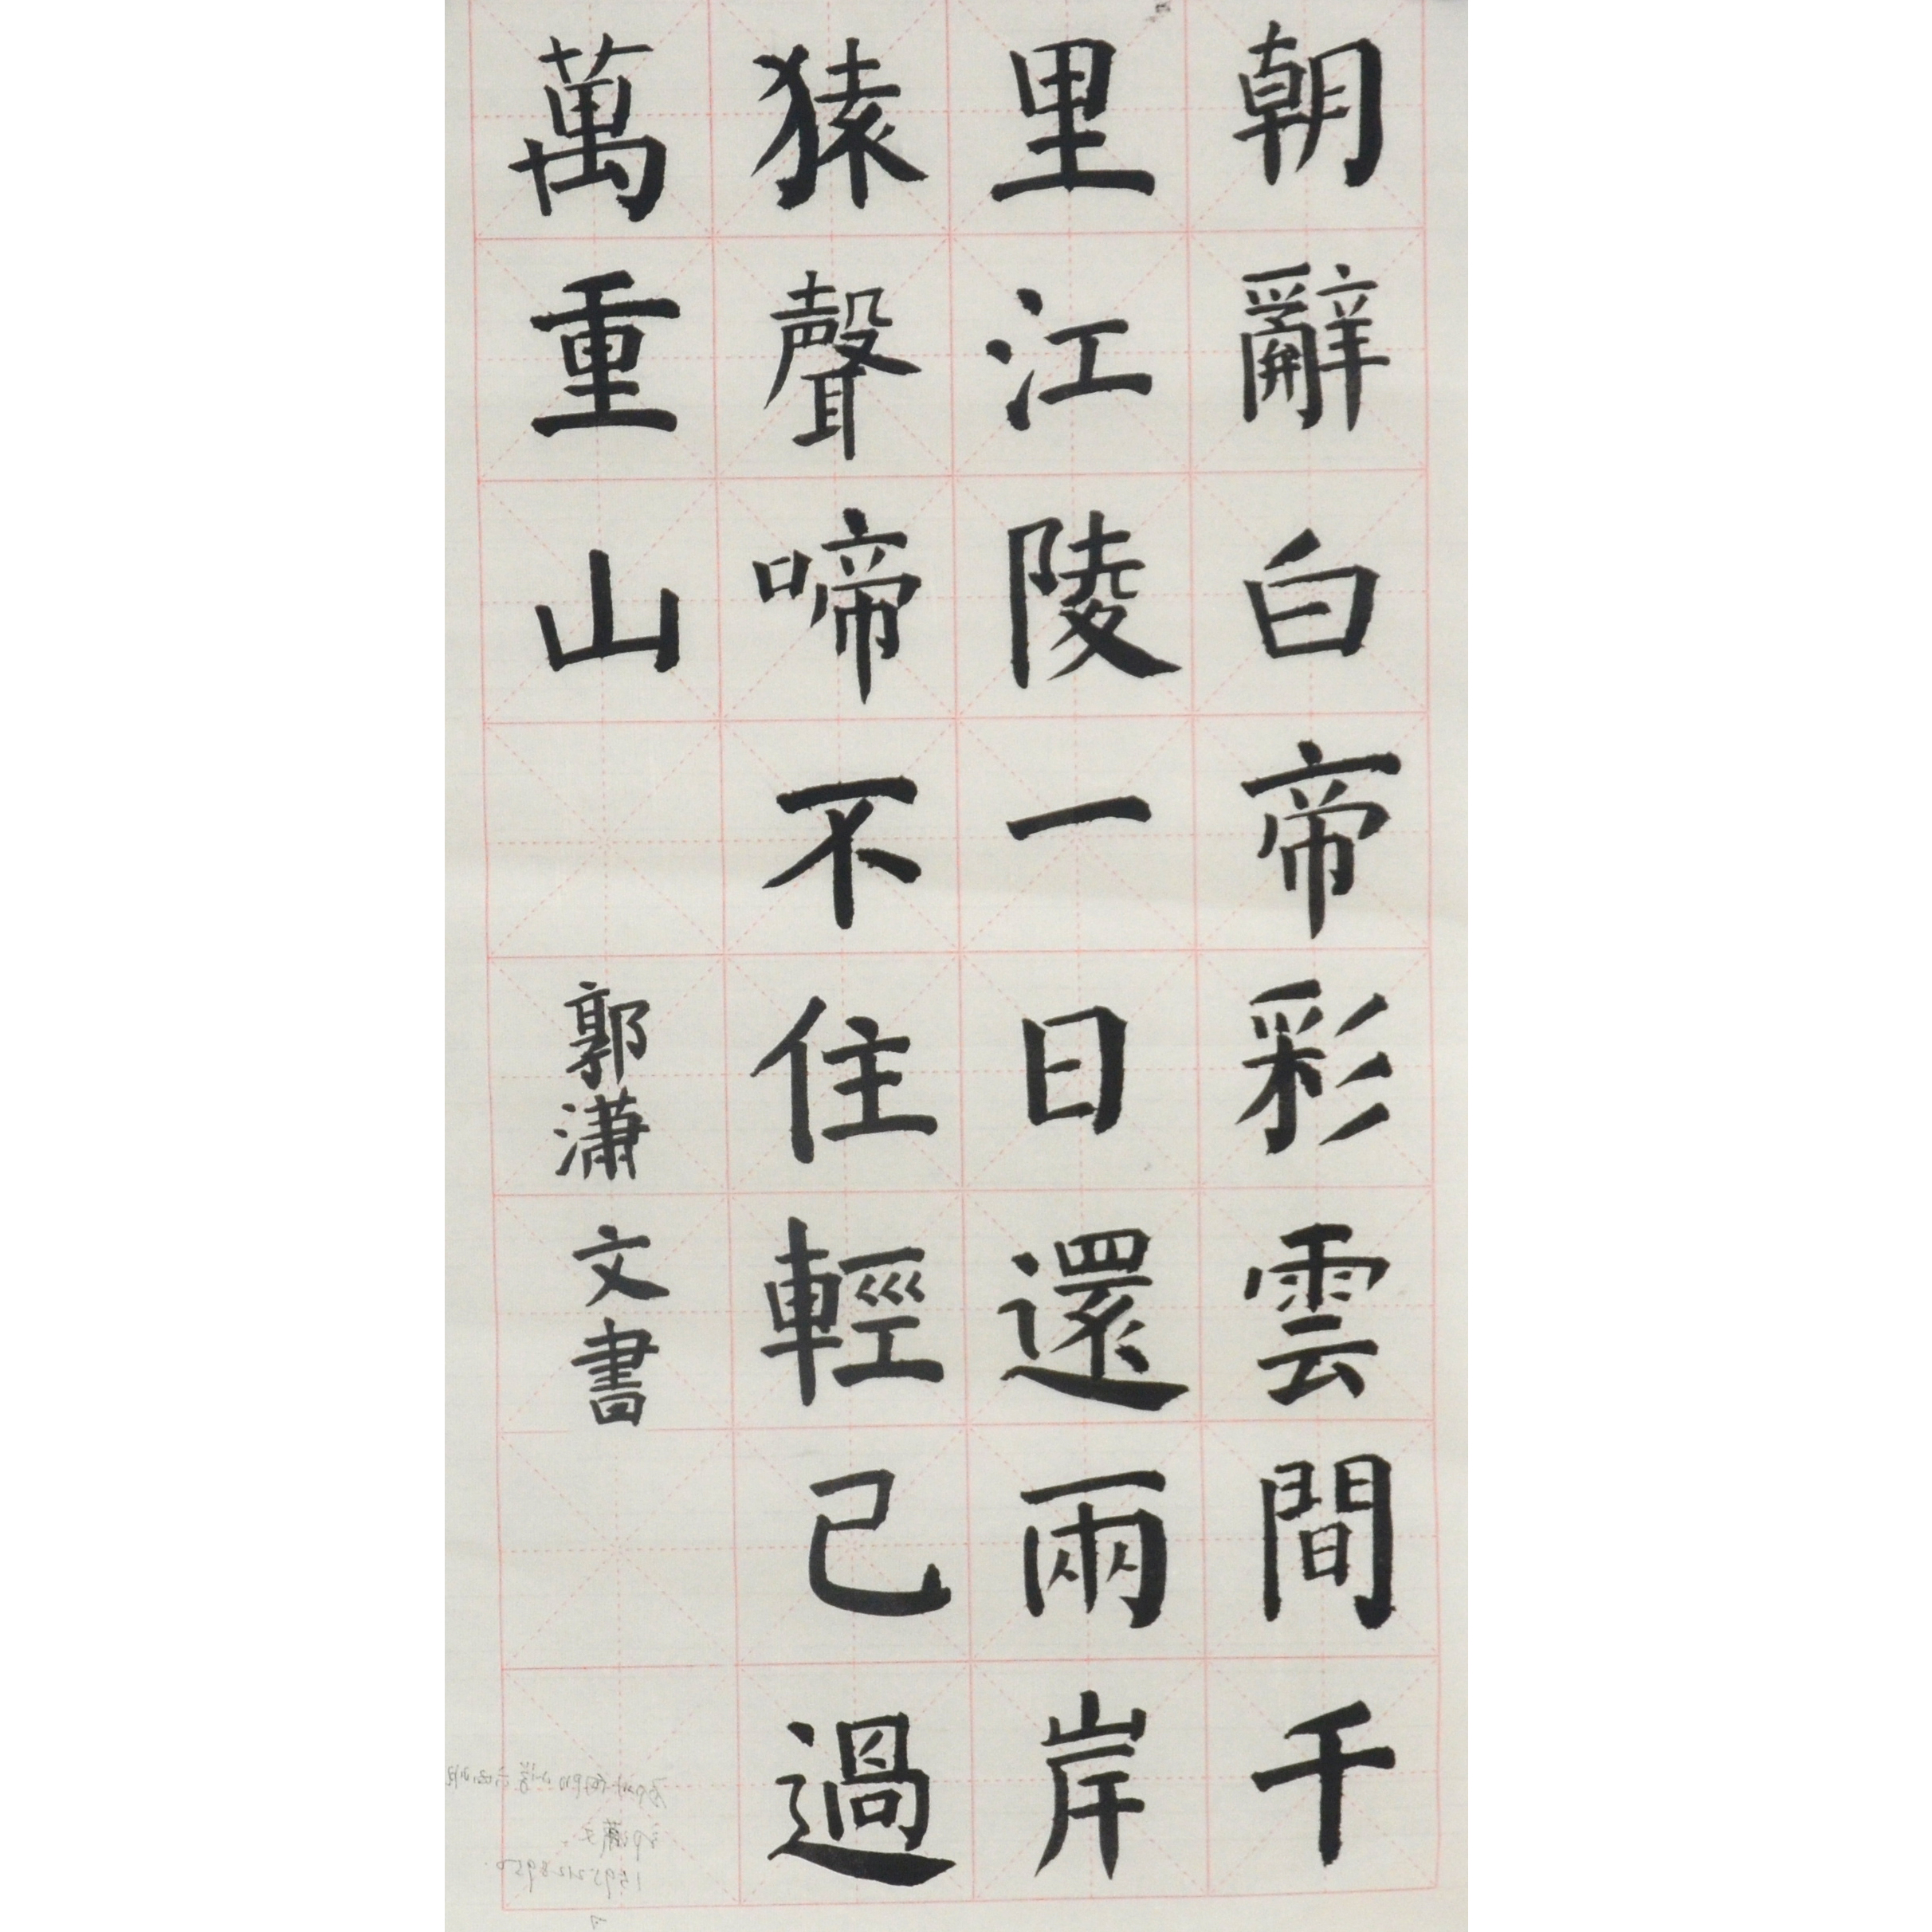 朝辭白帝彩雲間千
里江陵一日還兩岸
猿聲啼不住輕己過
萬重山
郭瀟文書